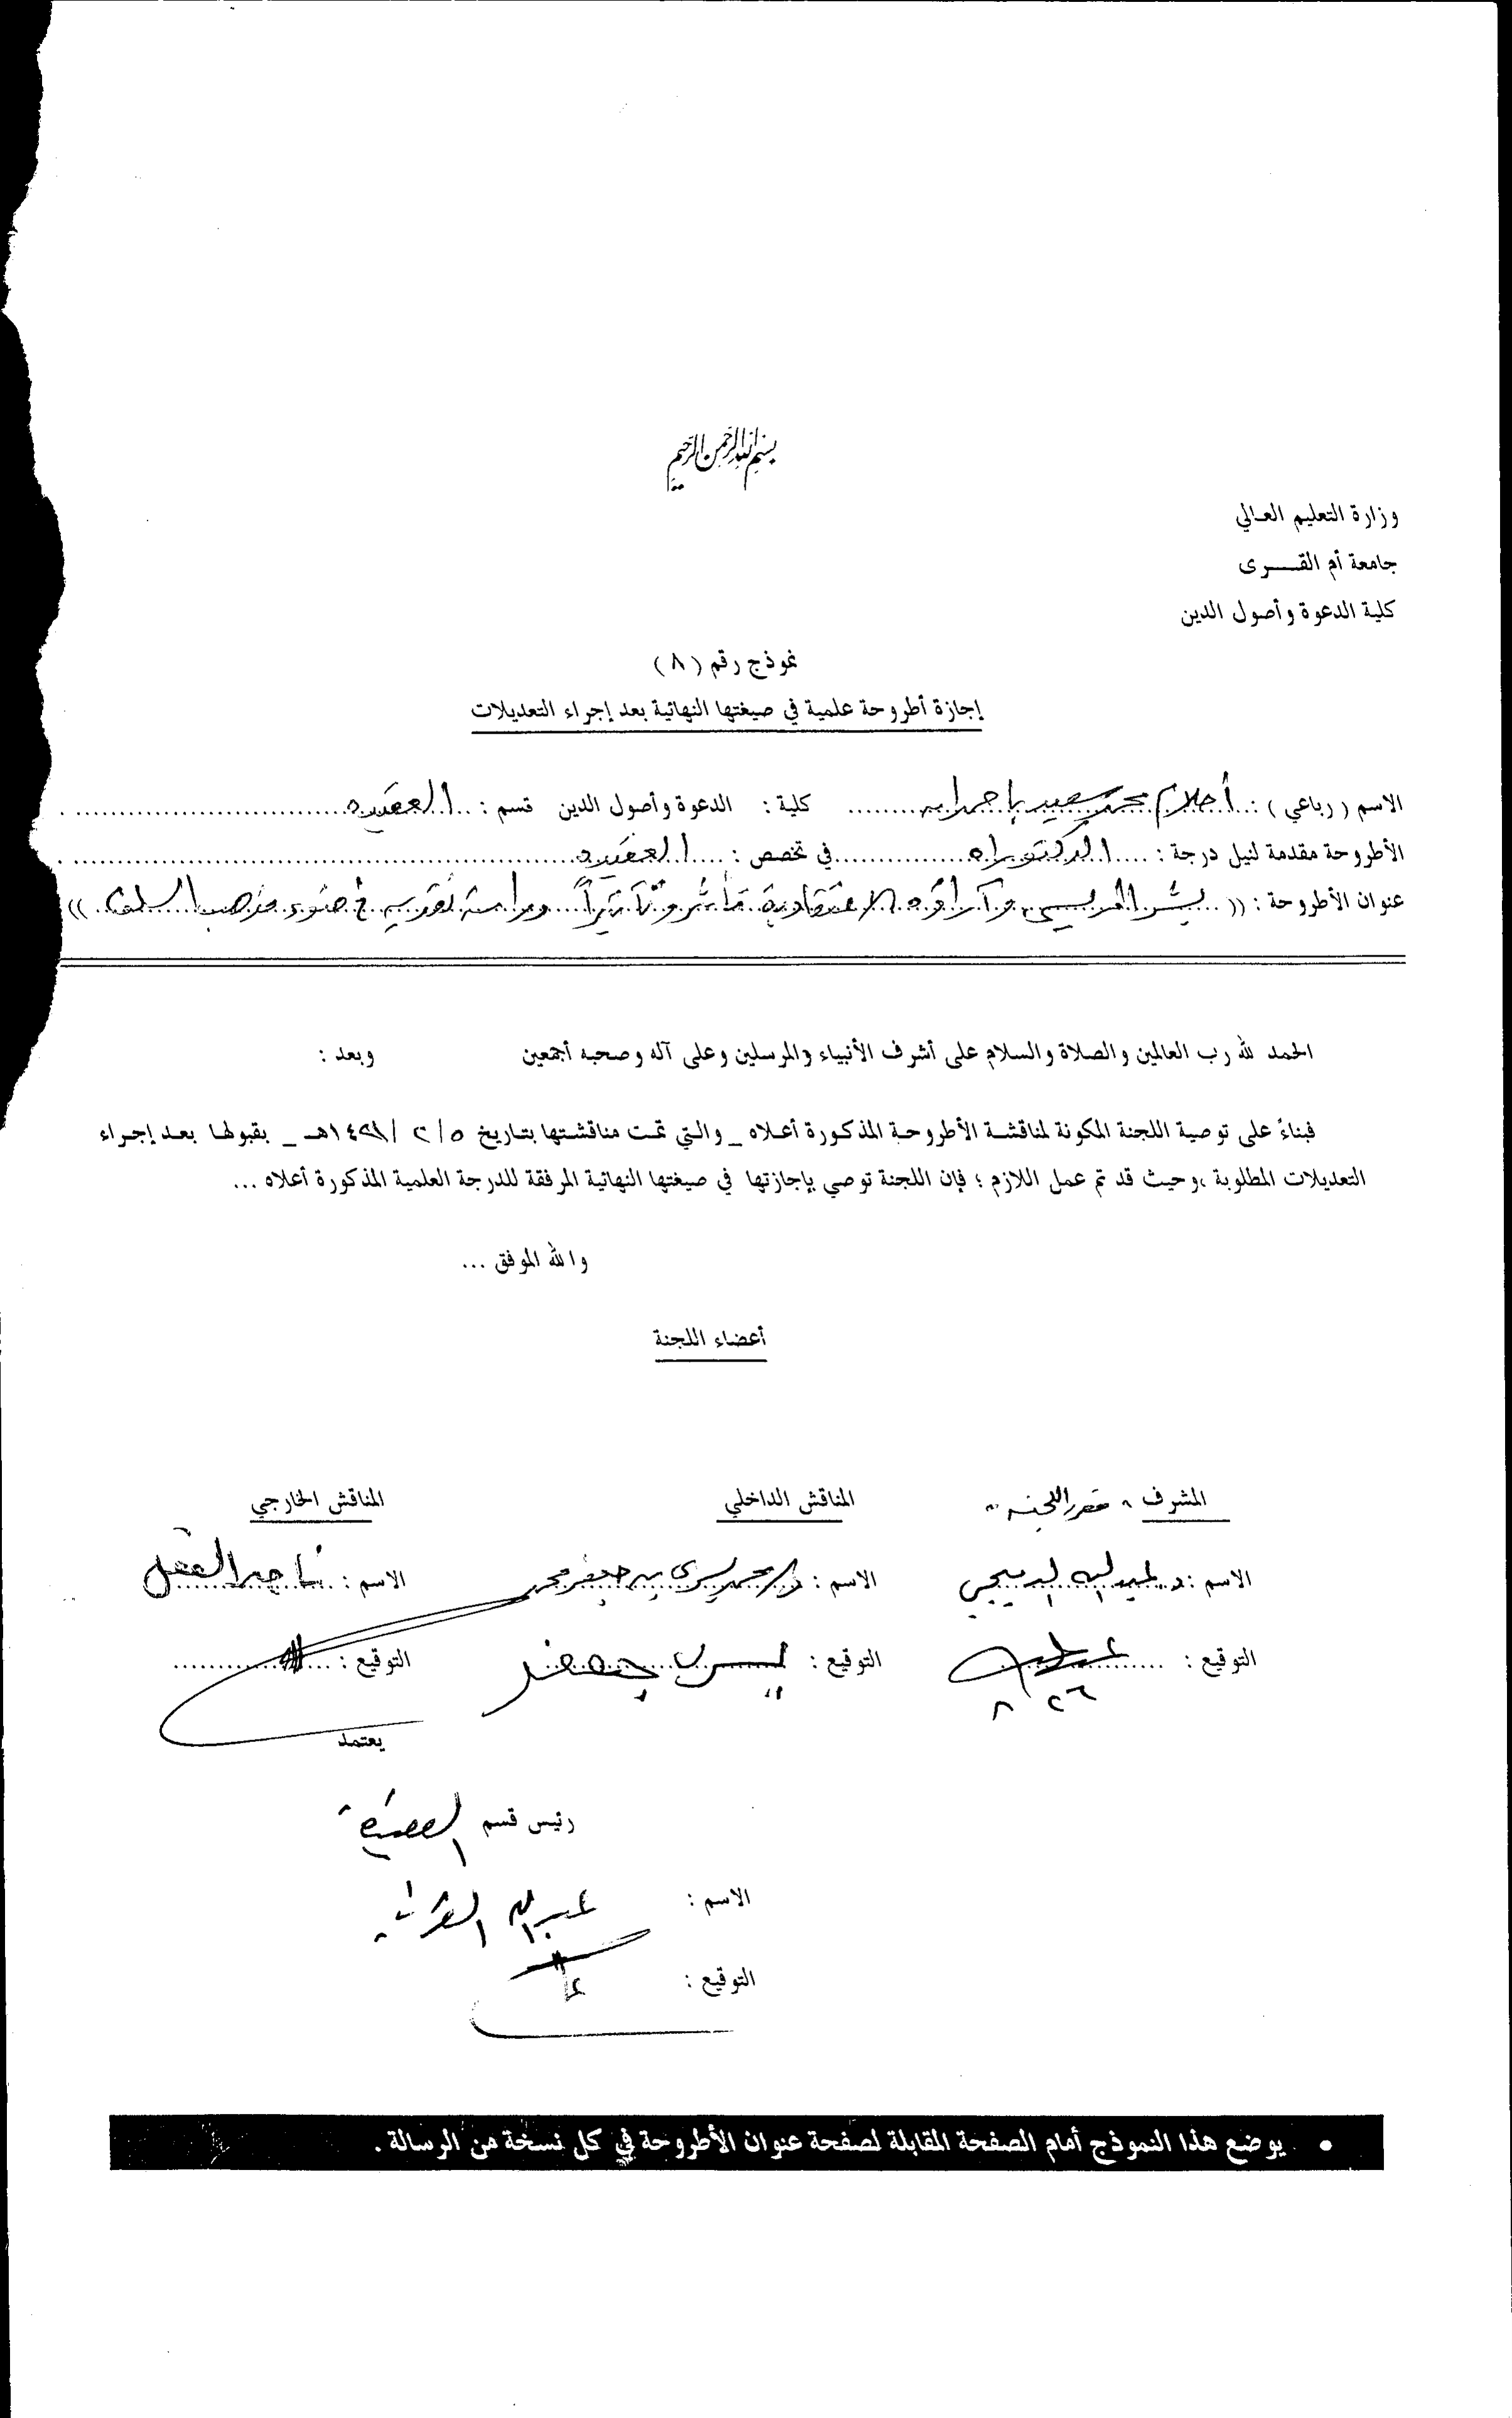 بسم الله الرحمن الرحيم
وزارة التعليم العالي
جامعة أم القــــرى
كلية الدعوة وأصول الدين
نموذج رقم ( ٨ )
إجازة أطروحة علمية في صيغتها النهائية بعد إجراء التعديلات
الاسم ( رباعي ) : أحلام محمد سعيد باحمدان كلية : الدعوة وأصول الدين قسم : العقيدة
الأطروحة مقدمة لنيل درجة : الدكتوراه في تخصص : العقيدة
عنوان الأطروحة : (( بشر المريسي وآراؤه الاعتقادية تأثراً وتأثيراً دراسة نقدية في ضوء مذهب السلف ))
الحمد لله رب العالمين والصلاة والسلام على أشرف الأنبياء والمرسلين وعلى آله وصحبه أجمعين وبعد :
فبناءً على توصية اللجنة المكونة لمناقشة الأطروحة المذكورة أعلاه _ والتي تمت مناقشتها بتاريخ ٥ / ٢ / هـ _ بقبولها بعد إجراء
التعديلات المطلوبة ، وحيث قد تم عمل اللازم ؛ فإن اللجنة توصي بإجازتها في صيغتها النهائية المرفقة للدرجة العلمية المذكورة أعلاه ...
والله الموفق ...
أعضاء اللجنة
المشرف " مقرر اللجنة " المناقش الداخلي المناقش الخارجي
الاسم : د. عبدالله الدميجي الاسم : د. محمد يسري جعفر محمد الاسم : ناصر العقل
التوقيع : التوقيع : يسري جعفر التوقيع :
٢٦ ٨
يعتمد
رئيس قسم العقيدة
الاسم : عبدالله القرني
التوقيع :
• يوضع هذا النموذج أمام الصفحة المقابلة لصفحة عنوان الأطروحة في كل نسخة من الرسالة .